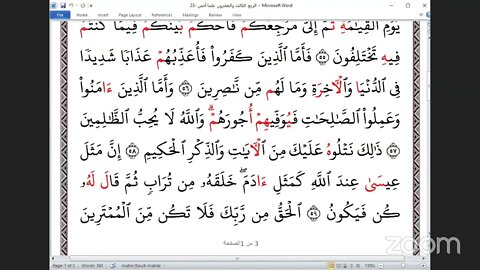 الربع الثالث والعشرون فلما أحس -23 - Microsoft Word
File Home Insert Page Layout References Mailings Review View
يَوْمِ ٱلْقِيَٰمَةِ ثُمَّ إِلَىَّ مَرْجِعُكُمْ فَأَحْكُمُ بَيْنَكُمْ فِيمَا كُنتُمْ
فِيهِ تَخْتَلِفُونَ ۝٥٥ فَأَمَّا ٱلَّذِينَ كَفَرُوا۟ فَأُعَذِّبُهُمْ عَذَابًا شَدِيدًا
فِى ٱلدُّنْيَا وَٱلْأَخِرَةِ وَمَا لَهُم مِّن نَّٰصِرِينَ ۝٥٦ وَأَمَّا ٱلَّذِينَ ءَامَنُوا۟
وَعَمِلُوا۟ ٱلصَّٰلِحَٰتِ فَيُوَفِّيهِمْ أُجُورَهُمْ ۗ وَٱللَّهُ لَا يُحِبُّ ٱلظَّٰلِمِينَ
۝٥٧ ذَٰلِكَ نَتْلُوهُ عَلَيْكَ مِنَ ٱلْأَيَٰتِ وَٱلذِّكْرِ ٱلْحَكِيمِ ۝٥٨ إِنَّ مَثَلَ
عِيسَىٰ عِندَ ٱللَّهِ كَمَثَلِ ءَادَمَ ۖ خَلَقَهُۥ مِن تُرَابٍ ثُمَّ قَالَ لَهُۥ
كُن فَيَكُونُ ۝٥٩ ٱلْحَقُّ مِن رَّبِّكَ فَلَا تَكُن مِّنَ ٱلْمُمْتَرِينَ
3 من 1 الصفحة
zoom
Page: 1 of 3 Words: 360 Arabic (Saudi Arabia) 110%